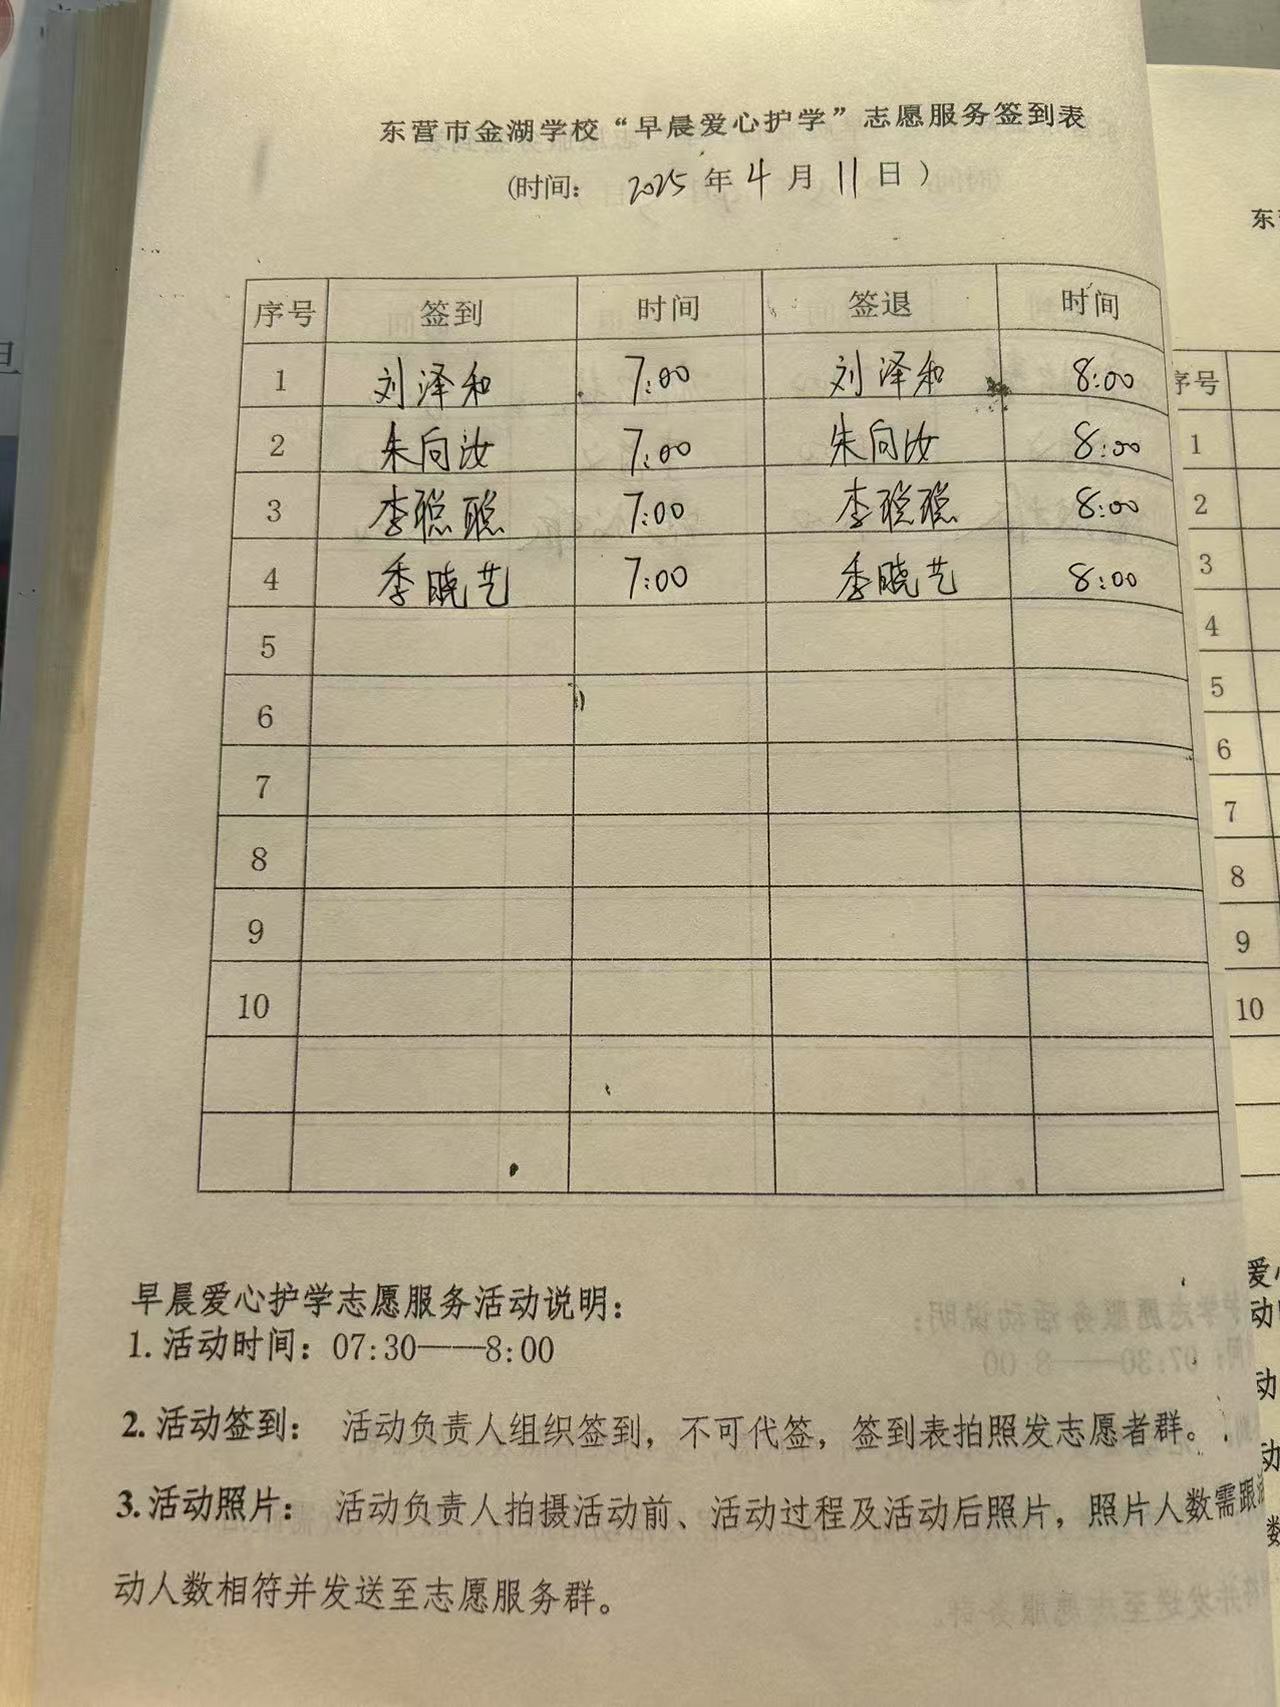 东营市金湖学校“早晨爱心护学”志愿服务签到表
(时间: 2025年4月11日)
序号 签到 时间 签退 时间
1 刘泽和 7:00 刘泽和 8:00
2 朱向汝 7:00 朱向汝 8:00
3 李聪聪 7:00 李聪聪 8:00
4 季晓艺 7:00 季晓艺 8:00
5
6
7
8
9
10
早晨爱心护学志愿服务活动说明:
1. 活动时间: 07:30——8:00
2. 活动签到: 活动负责人组织签到, 不可代签, 签到表拍照发志愿者群。
3. 活动照片: 活动负责人拍摄活动前、活动过程及活动后照片, 照片人数需跟
动人数相符并发送至志愿服务群。
东
序号
1
2
3
4
5
6
7
8
9
10
爱
动
动
动
数